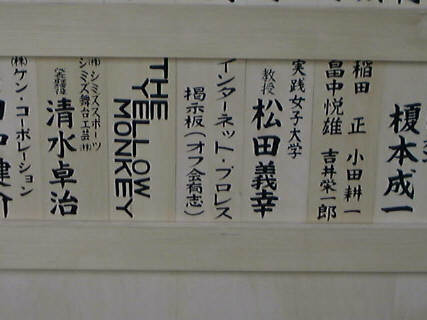 榎本成一
稲田 正 小田耕一
畠中悦雄 吉井栄一郎
実践女子大学
教授 松田義幸
インターネット・プロレス
掲示板(オフ会有志)
THE
YELLOW
MONKEY
(株)シミズスポーツ
シミズ舞台工芸(株)
代表取締役 清水卓治
(株)ケン・コーポレーション